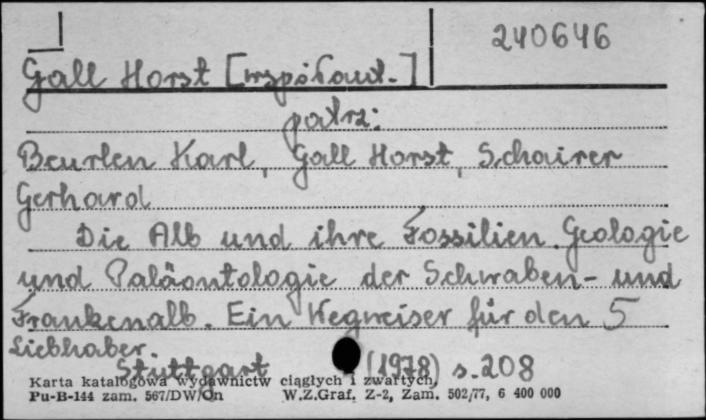 240646
Gall Horst [współaut.]
patrz:
Beurlen Karl, Gall Horst, Schairer
Gerhard
Die Alb und ihre Fossilien. Geologie
und Paläontologie der Schwaben- und
Frankenalb. Ein Wegweiser für den 5
Liebhaber.
Stuttgart (1978) s. 208
Karta katalogowa wydawnictw ciągłych i zwartych,
Pu-B-144 zam. 567/DW/On W.Z.Graf. Z-2, Zam. 502/77, 6 400 000